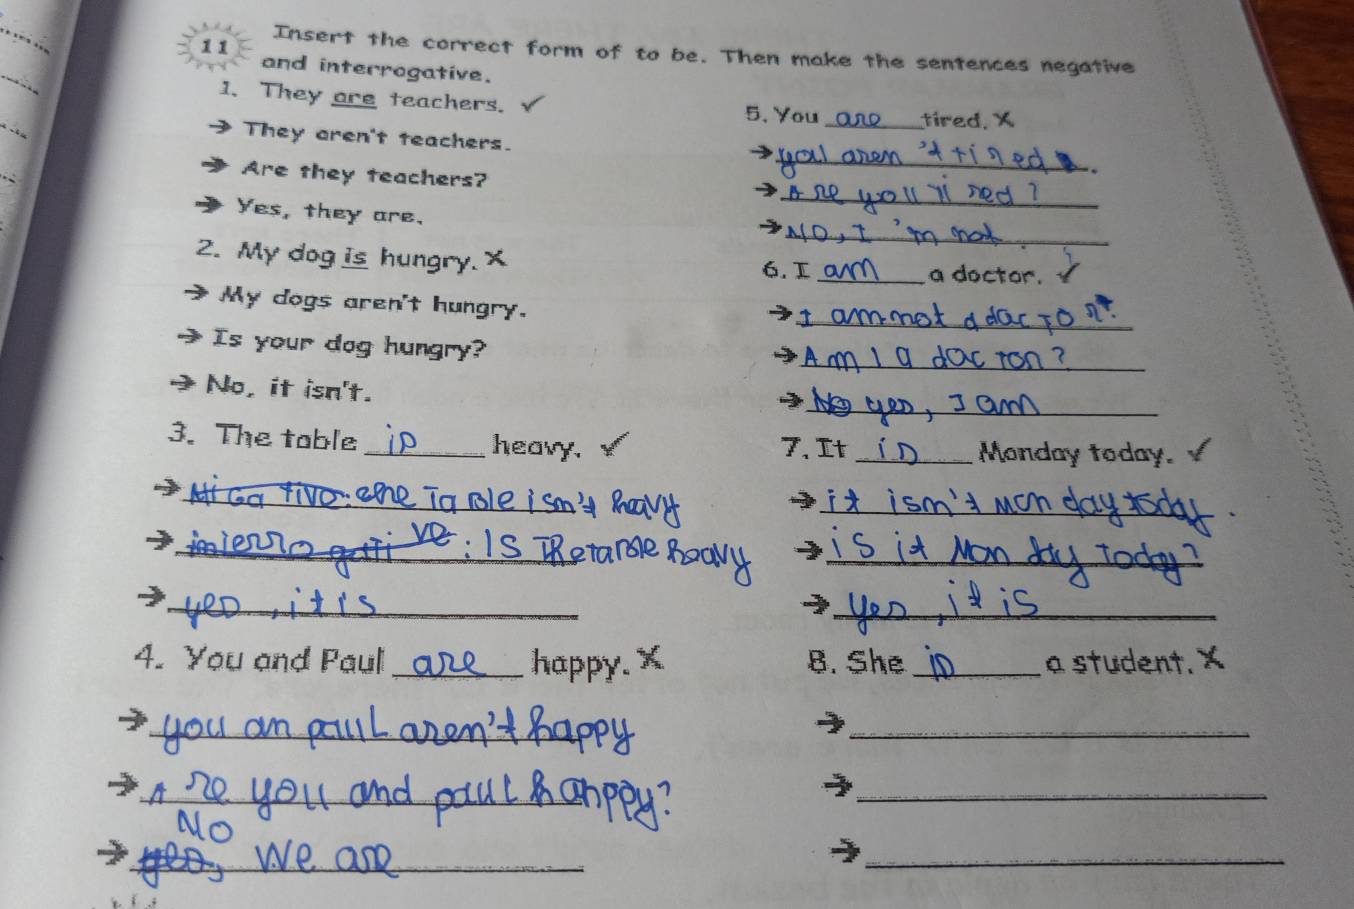 11
Insert the correct form of to be. Then make the sentences negative
and interrogative.
1. They are teachers. ✓
→ They aren't teachers.
→ Are they teachers?
→ Yes, they are.
2. My dog is hungry. X
→ My dogs aren't hungry.
→ Is your dog hungry?
→ No, it isn't.
3. The table is heavy. ✓
→ the Table isn't heavy
→ : Is The table heavy
→ yes, it is
4. You and Paul are happy. X
→ you an paul aren't happy
→ Are you and paul hanppy?
NO
→ We are
5. You are tired. X
→ you aren't tired .
→ Are you tired?
→ NO, I'm not.
6. I am a doctor. ✓
→ I am not a doctor.
→ Am I a doctor?
→ yes, I am
7. It is Monday today. ✓
→ it isn't Monday today.
→ is it Monday Today?
→ yes, it is
8. She is a student. X
→
→
→